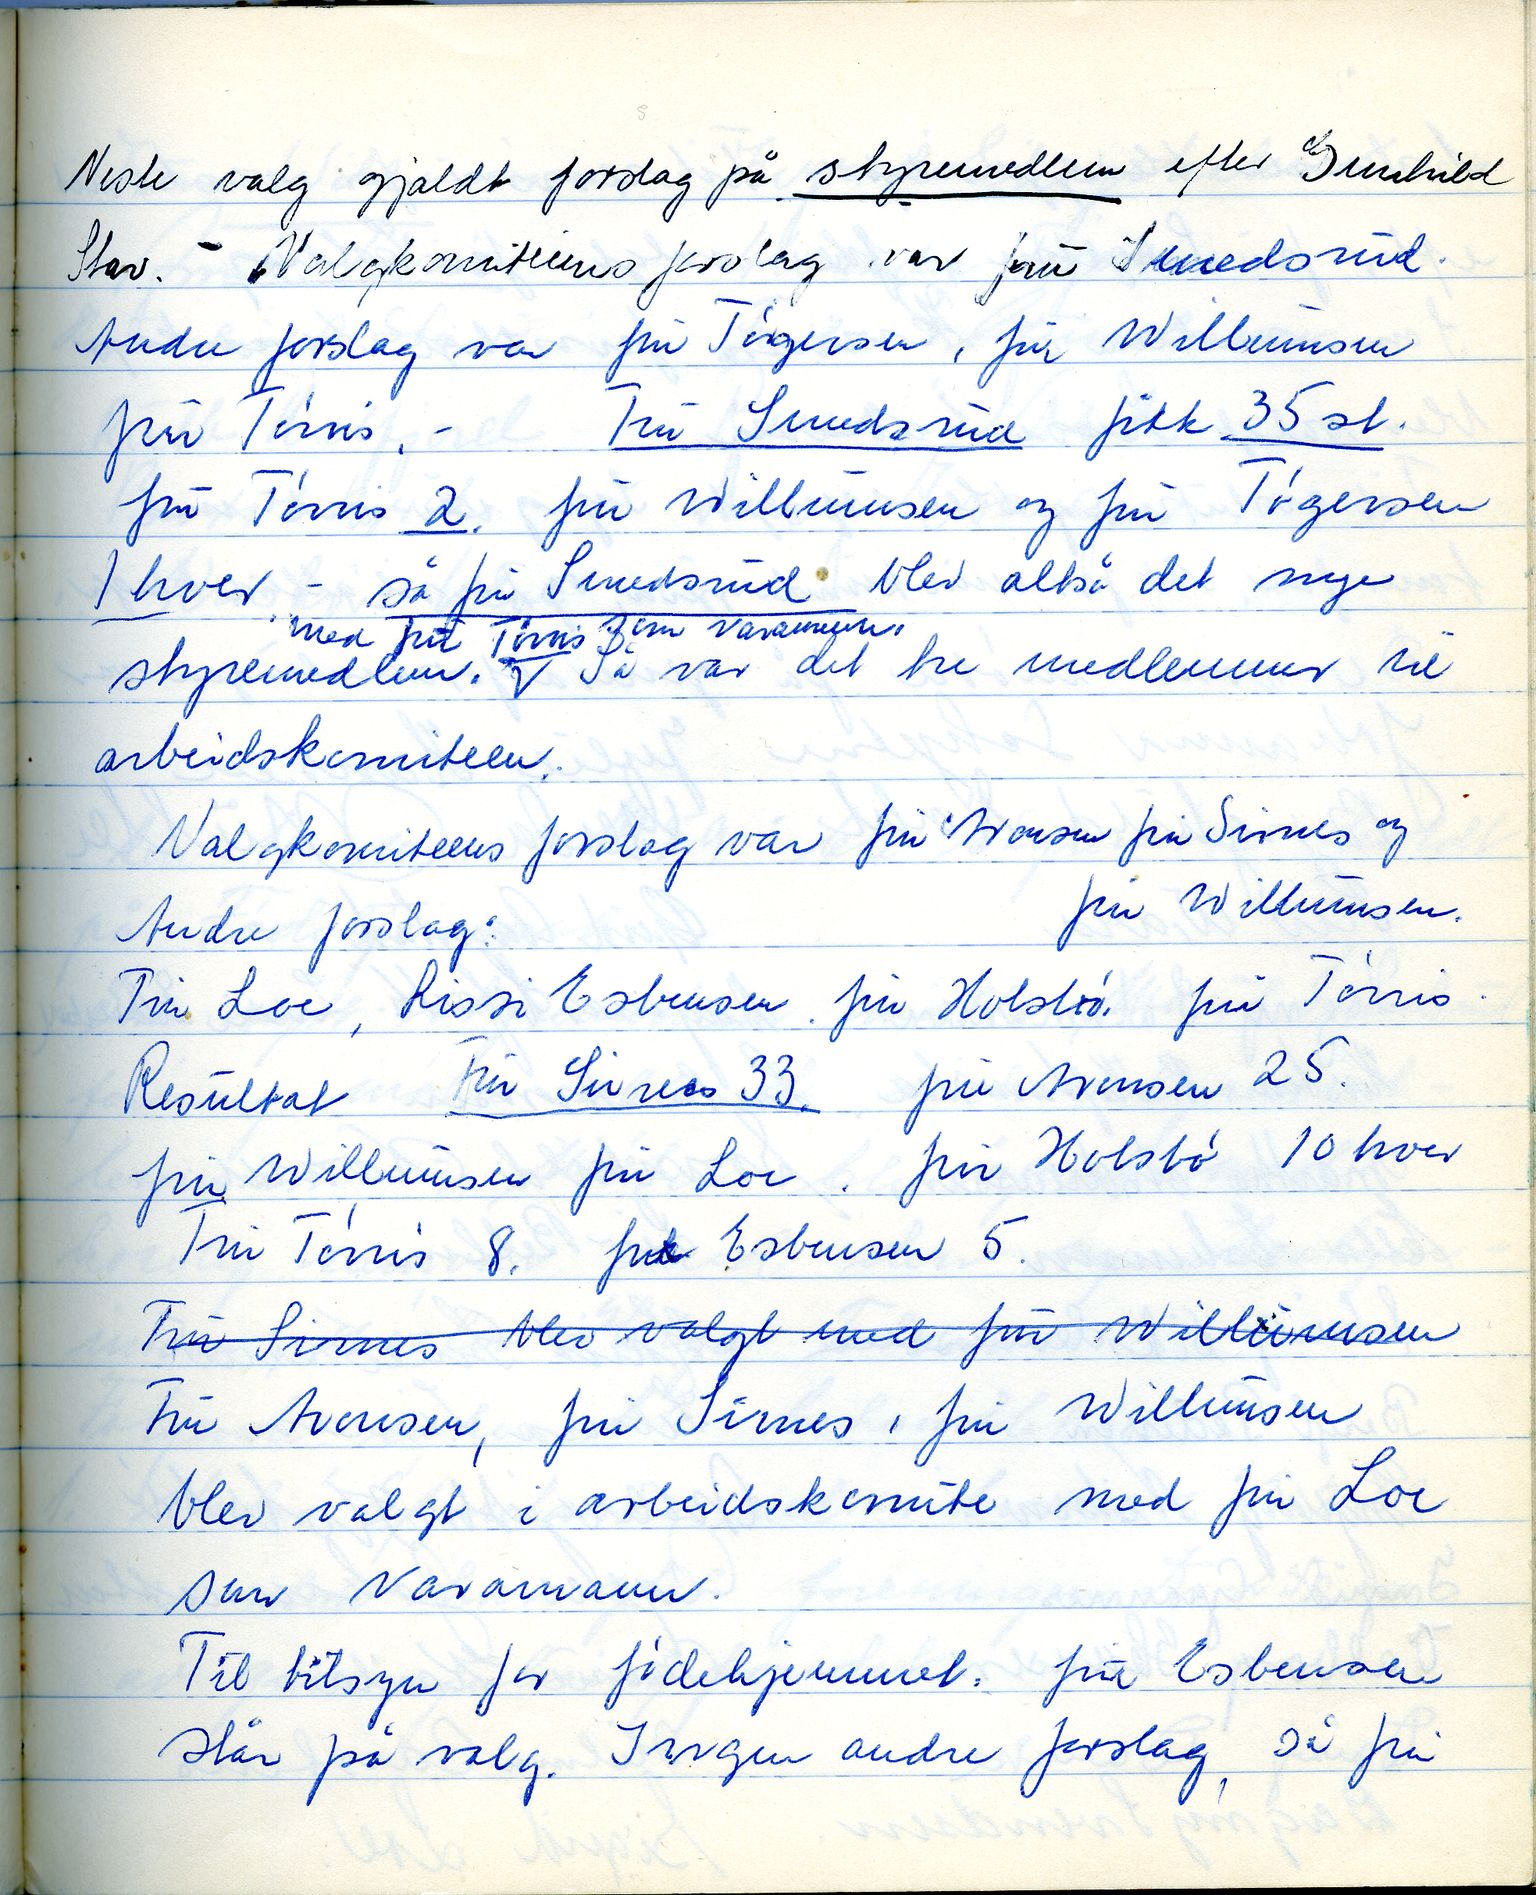 Neste valg gjaldt forslag på styremedlem efter Gunhild
Stav. - Valgkomiteens forslag var frü Smedsrüd.
Andre forslag var frü Tørgersen, frü Willümsen
frü Tørris. - Frü Smedsrüd fikk 35 st.
frü Tørris 2. frü Willümsen og frü Tøgersen
1 hver - så frü Smedsrüd blev altså det nye
med frü Tørris som varamann.
styremedlem. Så var det tre medlemmer til
arbeidskomiteen.
Valgkomiteens forslag var frü Arensen frü Sirnes og
frü Willümsen.
Andre forslag:
Frü Loe, Lissi Esbensen frü Holsbø. frü Tørris.
Resültat Frü Sirnes 33. frü Arensen 25.
frü Willümsen frü Loe. frü Holsbø 10 hver
Frü Tørris 8. frk Esbensen 5.
Frü Sirnes blev valgt med frü Willümsen
Frü Arensen, frü Sirnes, frü Willümsen
blev valgt i arbeidskomite med frü Loe
som varamann.
Til tilsyn for fødehjemmet. frü Esbensen
står på valg. Ingen andre forslag, så frü